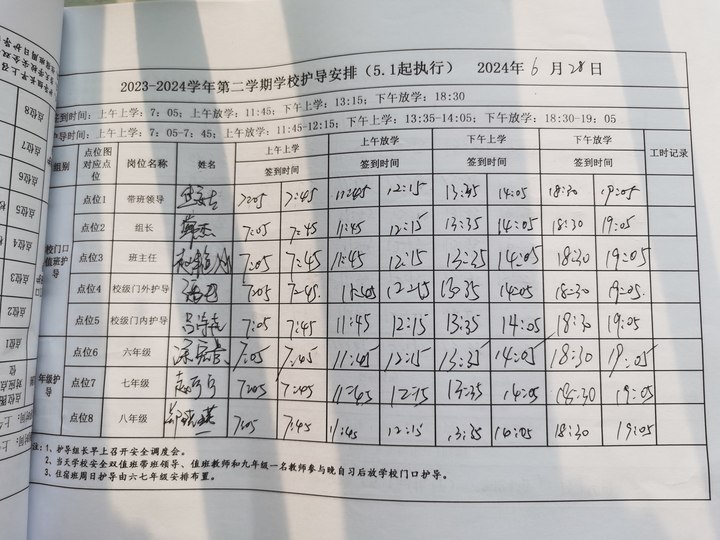 2023-2024学年第二学期学校护导安排（5.1起执行） 2024年 6 月 28 日
签到时间：上午上学：7：05；上午放学：11:45；下午上学：13:15；下午放学：18:30
护导时间：上午上学：7：05-7：45；上午放学：11:45-12:15；下午上学：13:35-14:05；下午放学：18:30-19：05
组别 点位图对应点位 岗位名称 姓名 签到时间 上午放学 签到时间 下午上学 签到时间 下午放学 签到时间 工时记录
校门口值班护导
点位1 带班领导 7:05 7:45 11:45 12:15 13:35 14:05 18:30 19:05
点位2 组长 7:05 7:45 11:45 12:15 13:35 14:05 18:30 19:05
点位3 班主任 7:05 7:45 11:45 12:15 13:35 14:05 18:30 19:05
点位4 校级门外护导 7:05 7:45 11:45 12:15 13:35 14:05 18:30 19:05
点位5 校级门内护导 7:05 7:45 11:45 12:15 13:35 14:05 18:30 19:05
年级护导
点位6 六年级 7:05 7:45 11:45 12:15 13:35 14:05 18:30 19:05
点位7 七年级 7:05 7:45 11:45 12:15 13:35 14:05 18:30 19:05
点位8 八年级 7:05 7:45 11:45 12:15 13:35 14:05 18:30 19:05
注：1、护导组长早上召开安全调度会。
2、当天学校安全双值班带班领导、值班教师和九年级一名教师参与晚自习后放学校门口护导。
3、住宿班周日护导由六七年级安排布置。